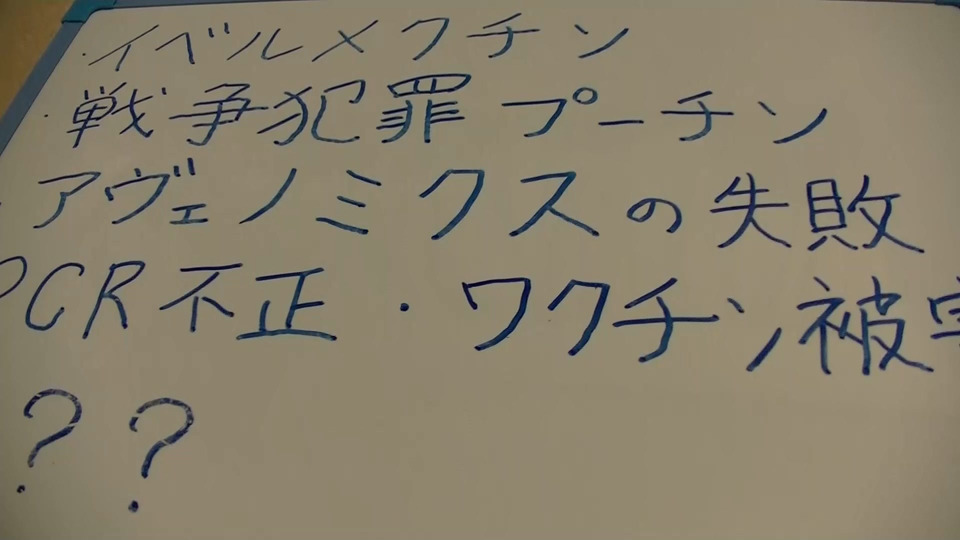 ・イベルメクチン
・戦争犯罪プーチン
・アヴェノミクスの失敗
PCR不正・ワクチン被害
??